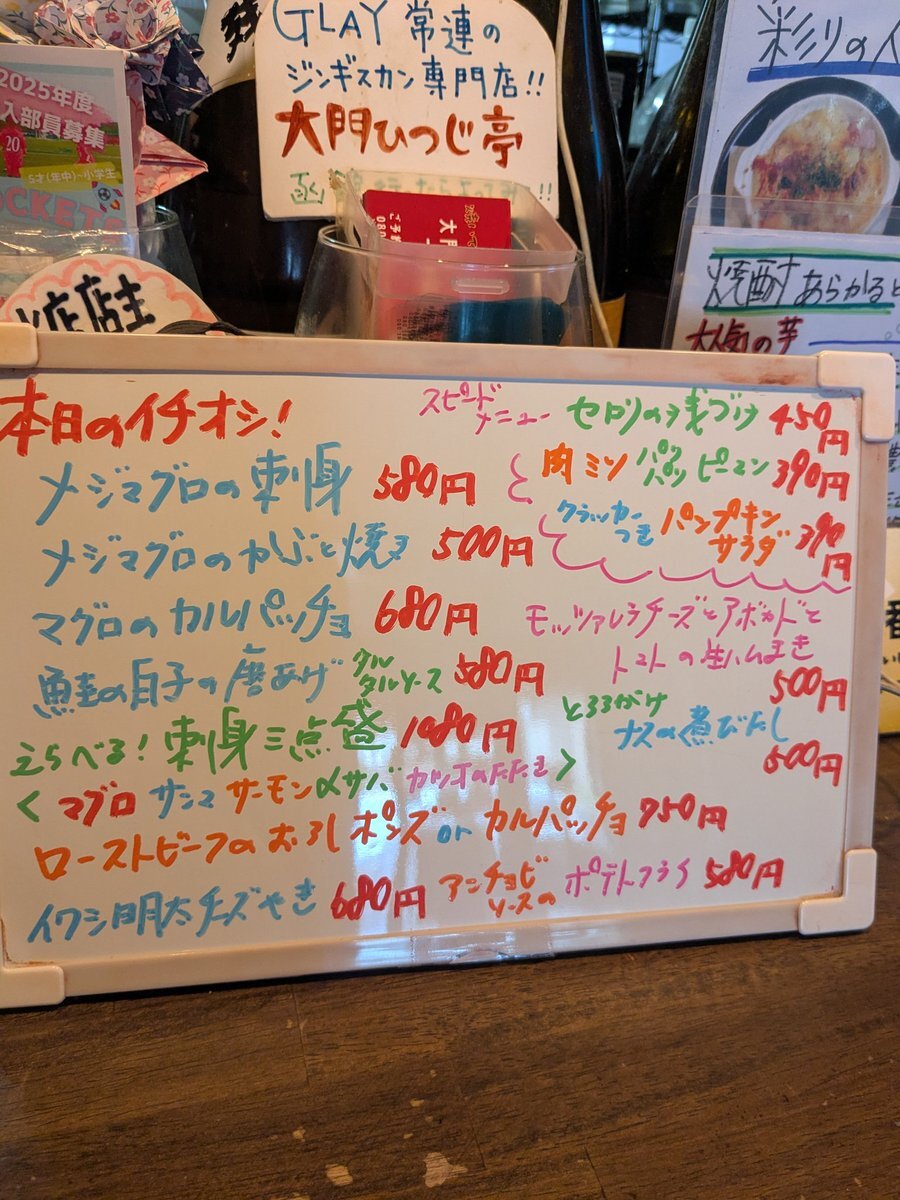 GLAY 常連の
ジンギスカン専門店!!
大門ひつじ亭
2025年度
入部員募集
20
5才(年中)~小学生
CKETS
店店主
大門
彩りの人
焼酎 あらかると
大人気の芋
本日のイチオシ!
メジマグロの刺身 580円
メジマグロのかぶと焼き 500円
マグロのカルパッチョ 680円
鮭の白子の唐あげ タルタルソース 580円
えらべる! 刺身三点盛 1080円
<マグロ サンマ サーモン 〆サバ カツオのたたき>
ローストビーフのおろしポンズ or カルパッチョ 750円
イワシ明太チーズやき 680円
アンチョビソースの ポテトフライ 580円
スピードメニュー
セロリの浅づけ 450円
肉ミソ パリパリ ピーマン 390円
クラッカーつき パンプキンサラダ 390円
モッツァレラチーズとアボカドと
トマトの生ハムまき
500円
とろろがけ
ナスの煮びたし
500円